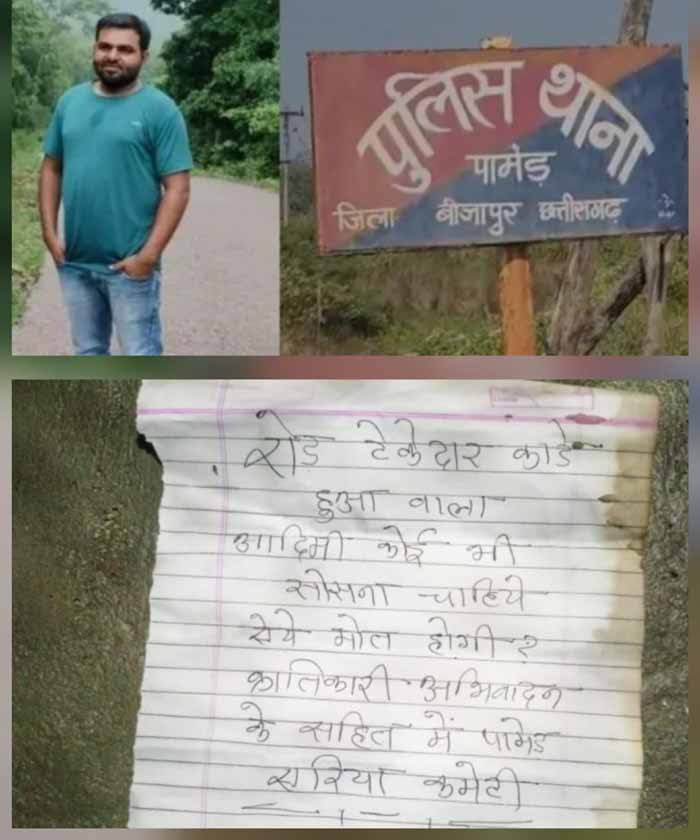 पुलिस थाना
पामेड़
जिला बीजापुर छत्तीसगढ़
रोड़ टेकेदार काडे
हुआ वाला
आदिमी कोई भी
सोसना चाहिये
सेये मोत होगी-?
क्रातिकारी अभिवादन
के सहित में पामेड
एरिया कमेटी